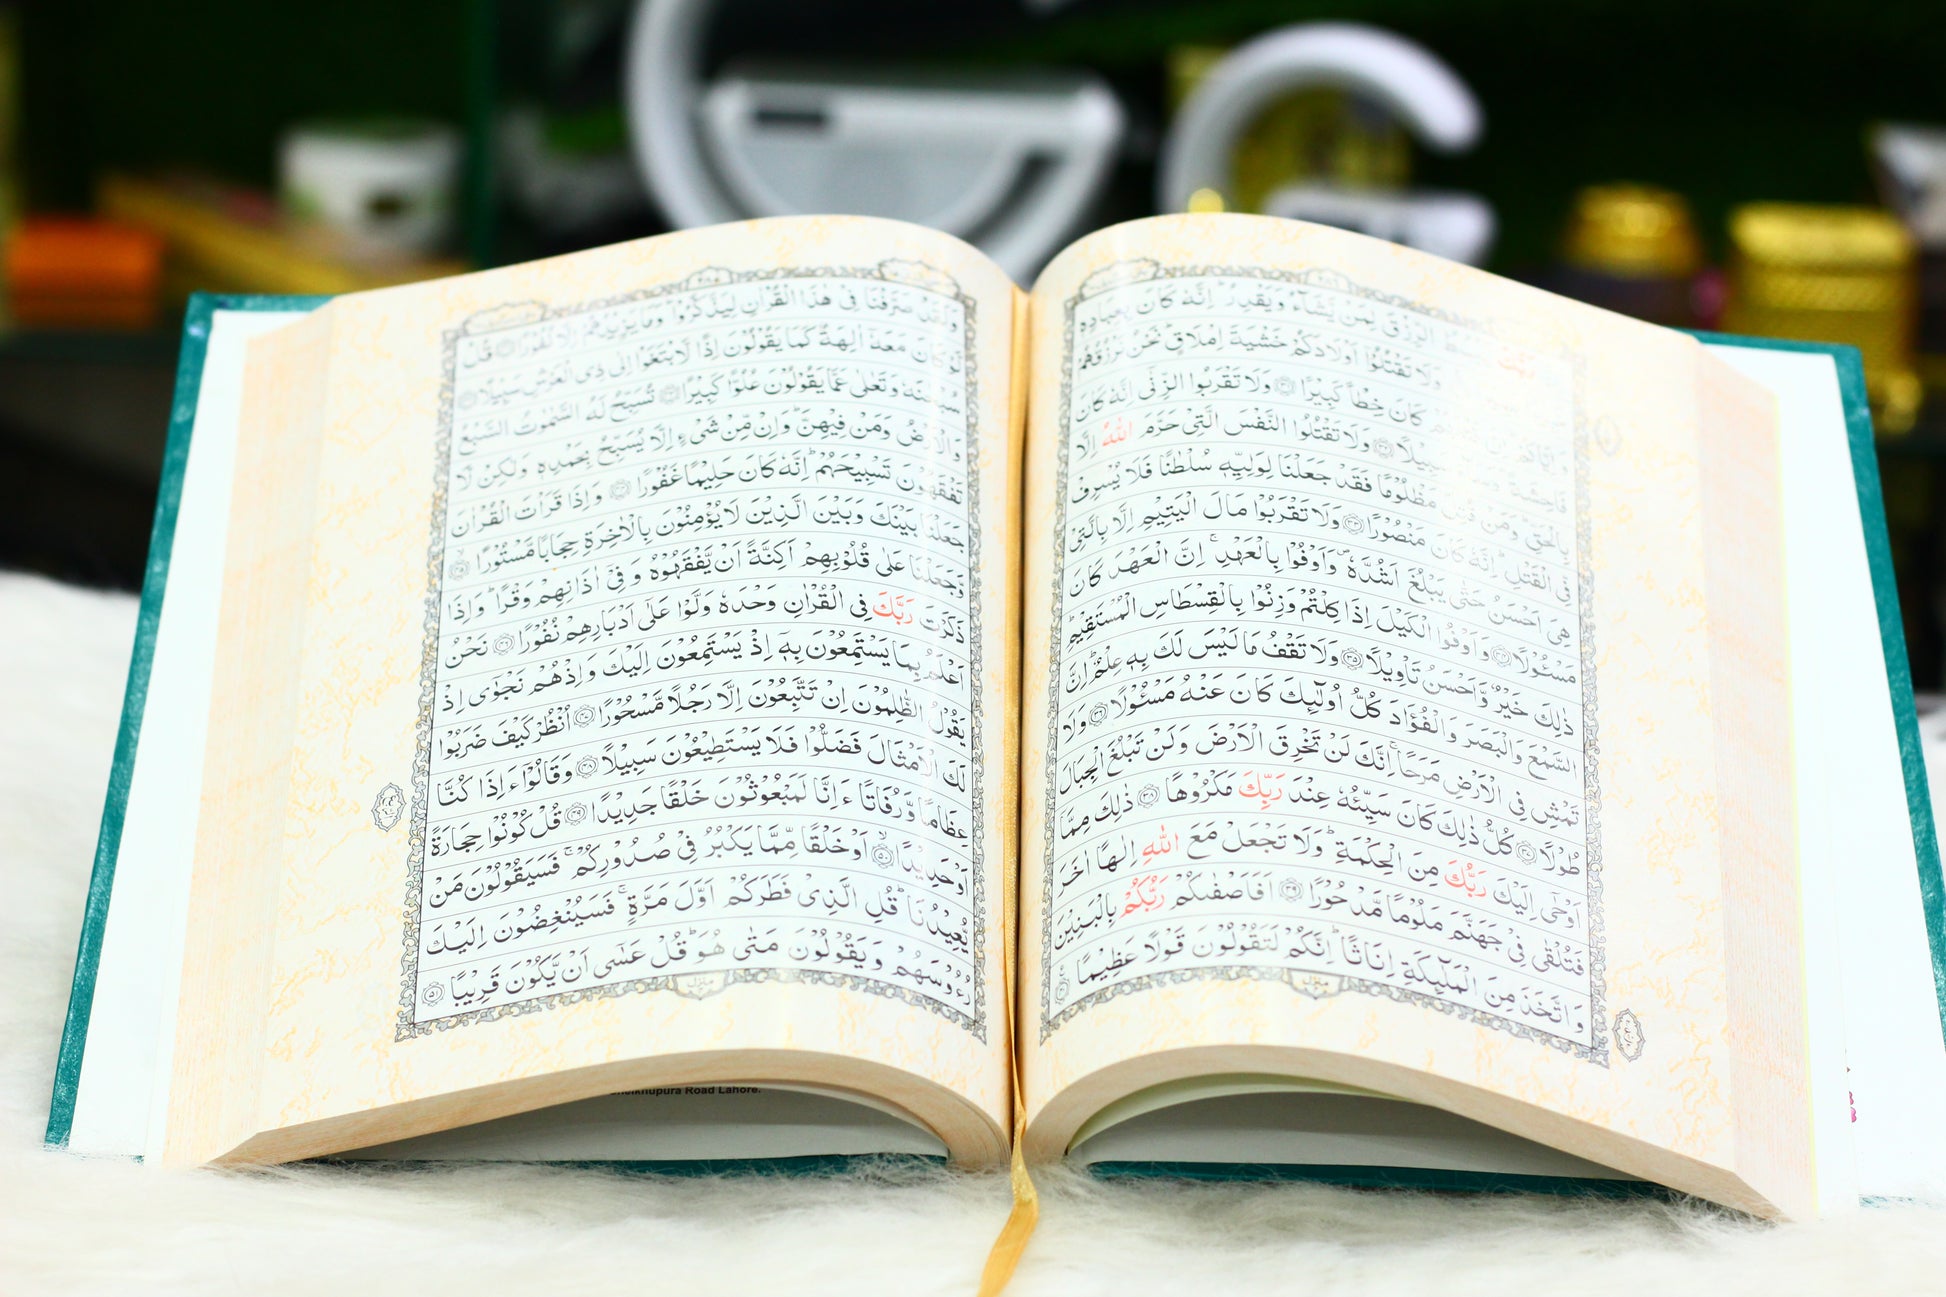 الرِّزْقَ لِمَنْ يَّشَآءُ وَيَقْدِرُ ؕ اِنَّهٗ كَانَ بِعِبَادِهٖ
وَلَا تَقْتُلُوْۤا اَوْلَادَكُمْ خَشْيَةَ اِمْلَاقٍ ؕ نَحْنُ نَرْزُقُهُمْ
وَاِيَّاكُمْ كَانَ خِطْاً كَبِيْرًا ۝۳۱ وَلَا تَقْرَبُوا الزِّنٰٓى اِنَّهٗ كَانَ
فَاحِشَةً ؕ وَسَآءَ سَبِيْلًا ۝۳۲ وَلَا تَقْتُلُوا النَّفْسَ الَّتِىْ حَرَّمَ اللّٰهُ اِلَّا
بِالْحَقِّ ؕ وَمَنْ قُتِلَ مَظْلُوْمًا فَقَدْ جَعَلْنَا لِوَلِيِّهٖ سُلْطٰنًا فَلَا يُسْرِفْ
فِّى الْقَتْلِ ؕ اِنَّهٗ كَانَ مَنْصُوْرًا ۝۳۳ وَلَا تَقْرَبُوْا مَالَ الْيَتِيْمِ اِلَّا بِالَّتِىْ
هِىَ اَحْسَنُ حَتّٰى يَبْلُغَ اَشُدَّهٗ ۪ وَاَوْفُوْا بِالْعَهْدِ ۚ اِنَّ الْعَهْدَ كَانَ
مَسْـُٔوْلًا ۝۳۴ وَاَوْفُوا الْكَيْلَ اِذَا كِلْتُمْ وَزِنُوْا بِالْقِسْطَاسِ الْمُسْتَقِيْمِ ؕ
ذٰلِكَ خَيْرٌ وَّاَحْسَنُ تَاْوِيْلًا ۝۳۵ وَلَا تَقْفُ مَا لَيْسَ لَكَ بِهٖ عِلْمٌ ؕ اِنَّ
السَّمْعَ وَالْبَصَرَ وَالْفُؤَادَ كُلُّ اُولٰٓئِكَ كَانَ عَنْهُ مَسْـُٔوْلًا ۝۳۶ وَلَا
تَمْشِ فِى الْاَرْضِ مَرَحًا ۚ اِنَّكَ لَنْ تَخْرِقَ الْاَرْضَ وَلَنْ تَبْلُغَ الْجِبَالَ
طُوْلًا ۝۳۷ كُلُّ ذٰلِكَ كَانَ سَيِّئُهٗ عِنْدَ رَبِّكَ مَكْرُوْهًا ۝۳۸ ذٰلِكَ مِمَّاۤ
اَوْحٰۤى اِلَيْكَ رَبُّكَ مِنَ الْحِكْمَةِ ؕ وَلَا تَجْعَلْ مَعَ اللّٰهِ اِلٰهًا اٰخَرَ
فَتُلْقٰى فِىْ جَهَنَّمَ مَلُوْمًا مَّدْحُوْرًا ۝۳۹ اَفَاَصْفٰىكُمْ رَبُّكُمْ بِالْبَنِيْنَ
وَاتَّخَذَ مِنَ الْمَلٰٓئِكَةِ اِنَاثًا ؕ اِنَّكُمْ لَتَقُوْلُوْنَ قَوْلًا عَظِيْمًا ۝۴۰
وَلَقَدْ صَرَّفْنَا فِىْ هٰذَا الْقُرْاٰنِ لِيَذَّكَّرُوْا ؕ وَمَا يَزِيْدُهُمْ اِلَّا نُفُوْرًا ۝۴۱ قُلْ
لَّوْ كَانَ مَعَهٗۤ اٰلِهَةٌ كَمَا يَقُوْلُوْنَ اِذًا لَّابْتَغَوْا اِلٰى ذِى الْعَرْشِ سَبِيْلًا ۝۴۲
سُبْحٰنَهٗ وَتَعٰلٰى عَمَّا يَقُوْلُوْنَ عُلُوًّا كَبِيْرًا ۝۴۳ تُسَبِّحُ لَهُ السَّمٰوٰتُ السَّبْعُ
وَالْاَرْضُ وَمَنْ فِيْهِنَّ ؕ وَاِنْ مِّنْ شَىْءٍ اِلَّا يُسَبِّحُ بِحَمْدِهٖ وَلٰكِنْ لَّا
تَفْقَهُوْنَ تَسْبِيْحَهُمْ ؕ اِنَّهٗ كَانَ حَلِيْمًا غَفُوْرًا ۝۴۴ وَاِذَا قَرَاْتَ الْقُرْاٰنَ
جَعَلْنَا بَيْنَكَ وَبَيْنَ الَّذِيْنَ لَا يُؤْمِنُوْنَ بِالْاٰخِرَةِ حِجَابًا مَّسْتُوْرًا ۝۴۵
وَّجَعَلْنَا عَلٰى قُلُوْبِهِمْ اَكِنَّةً اَنْ يَّفْقَهُوْهُ وَفِىْۤ اٰذَانِهِمْ وَقْرًا ؕ وَاِذَا
ذَكَرْتَ رَبَّكَ فِى الْقُرْاٰنِ وَحْدَهٗ وَلَّوْا عَلٰٓى اَدْبَارِهِمْ نُفُوْرًا ۝۴۶ نَحْنُ
اَعْلَمُ بِمَا يَسْتَمِعُوْنَ بِهٖۤ اِذْ يَسْتَمِعُوْنَ اِلَيْكَ وَاِذْ هُمْ نَجْوٰٓى اِذْ
يَقُوْلُ الظّٰلِمُوْنَ اِنْ تَتَّبِعُوْنَ اِلَّا رَجُلًا مَّسْحُوْرًا ۝۴۷ اُنْظُرْ كَيْفَ ضَرَبُوْا
لَكَ الْاَمْثَالَ فَضَلُّوْا فَلَا يَسْتَطِيْعُوْنَ سَبِيْلًا ۝۴۸ وَقَالُوْۤا ءَاِذَا كُنَّا
عِظَامًا وَّرُفَاتًا ءَاِنَّا لَمَبْعُوْثُوْنَ خَلْقًا جَدِيْدًا ۝۴۹ قُلْ كُوْنُوْا حِجَارَةً
اَوْ حَدِيْدًا ۝۵۰ اَوْ خَلْقًا مِّمَّا يَكْبُرُ فِىْ صُدُوْرِكُمْ ۚ فَسَيَقُوْلُوْنَ مَنْ
يُّعِيْدُنَا ؕ قُلِ الَّذِىْ فَطَرَكُمْ اَوَّلَ مَرَّةٍ ۚ فَسَيُنْغِضُوْنَ اِلَيْكَ
رُءُوْسَهُمْ وَيَقُوْلُوْنَ مَتٰى هُوَ ؕ قُلْ عَسٰٓى اَنْ يَّكُوْنَ قَرِيْبًا ۝۵۱
Sheikhupura Road Lahore.